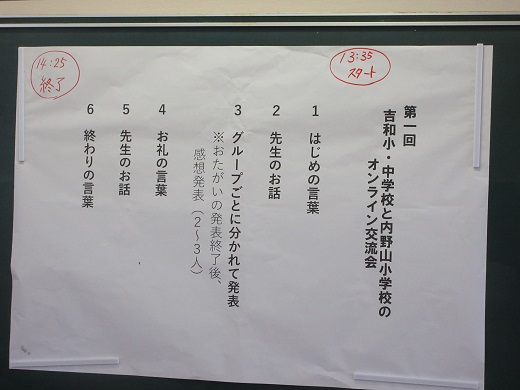 第一回
吉和小・中学校と内野山小学校の
オンライン交流会
13:35
スタート
1 はじめの言葉
2 先生のお話
3 グループごとに分かれて発表
※おたがいの発表終了後、
感想発表（2～3人）
4 お礼の言葉
5 先生のお話
6 終わりの言葉
14:25
終了